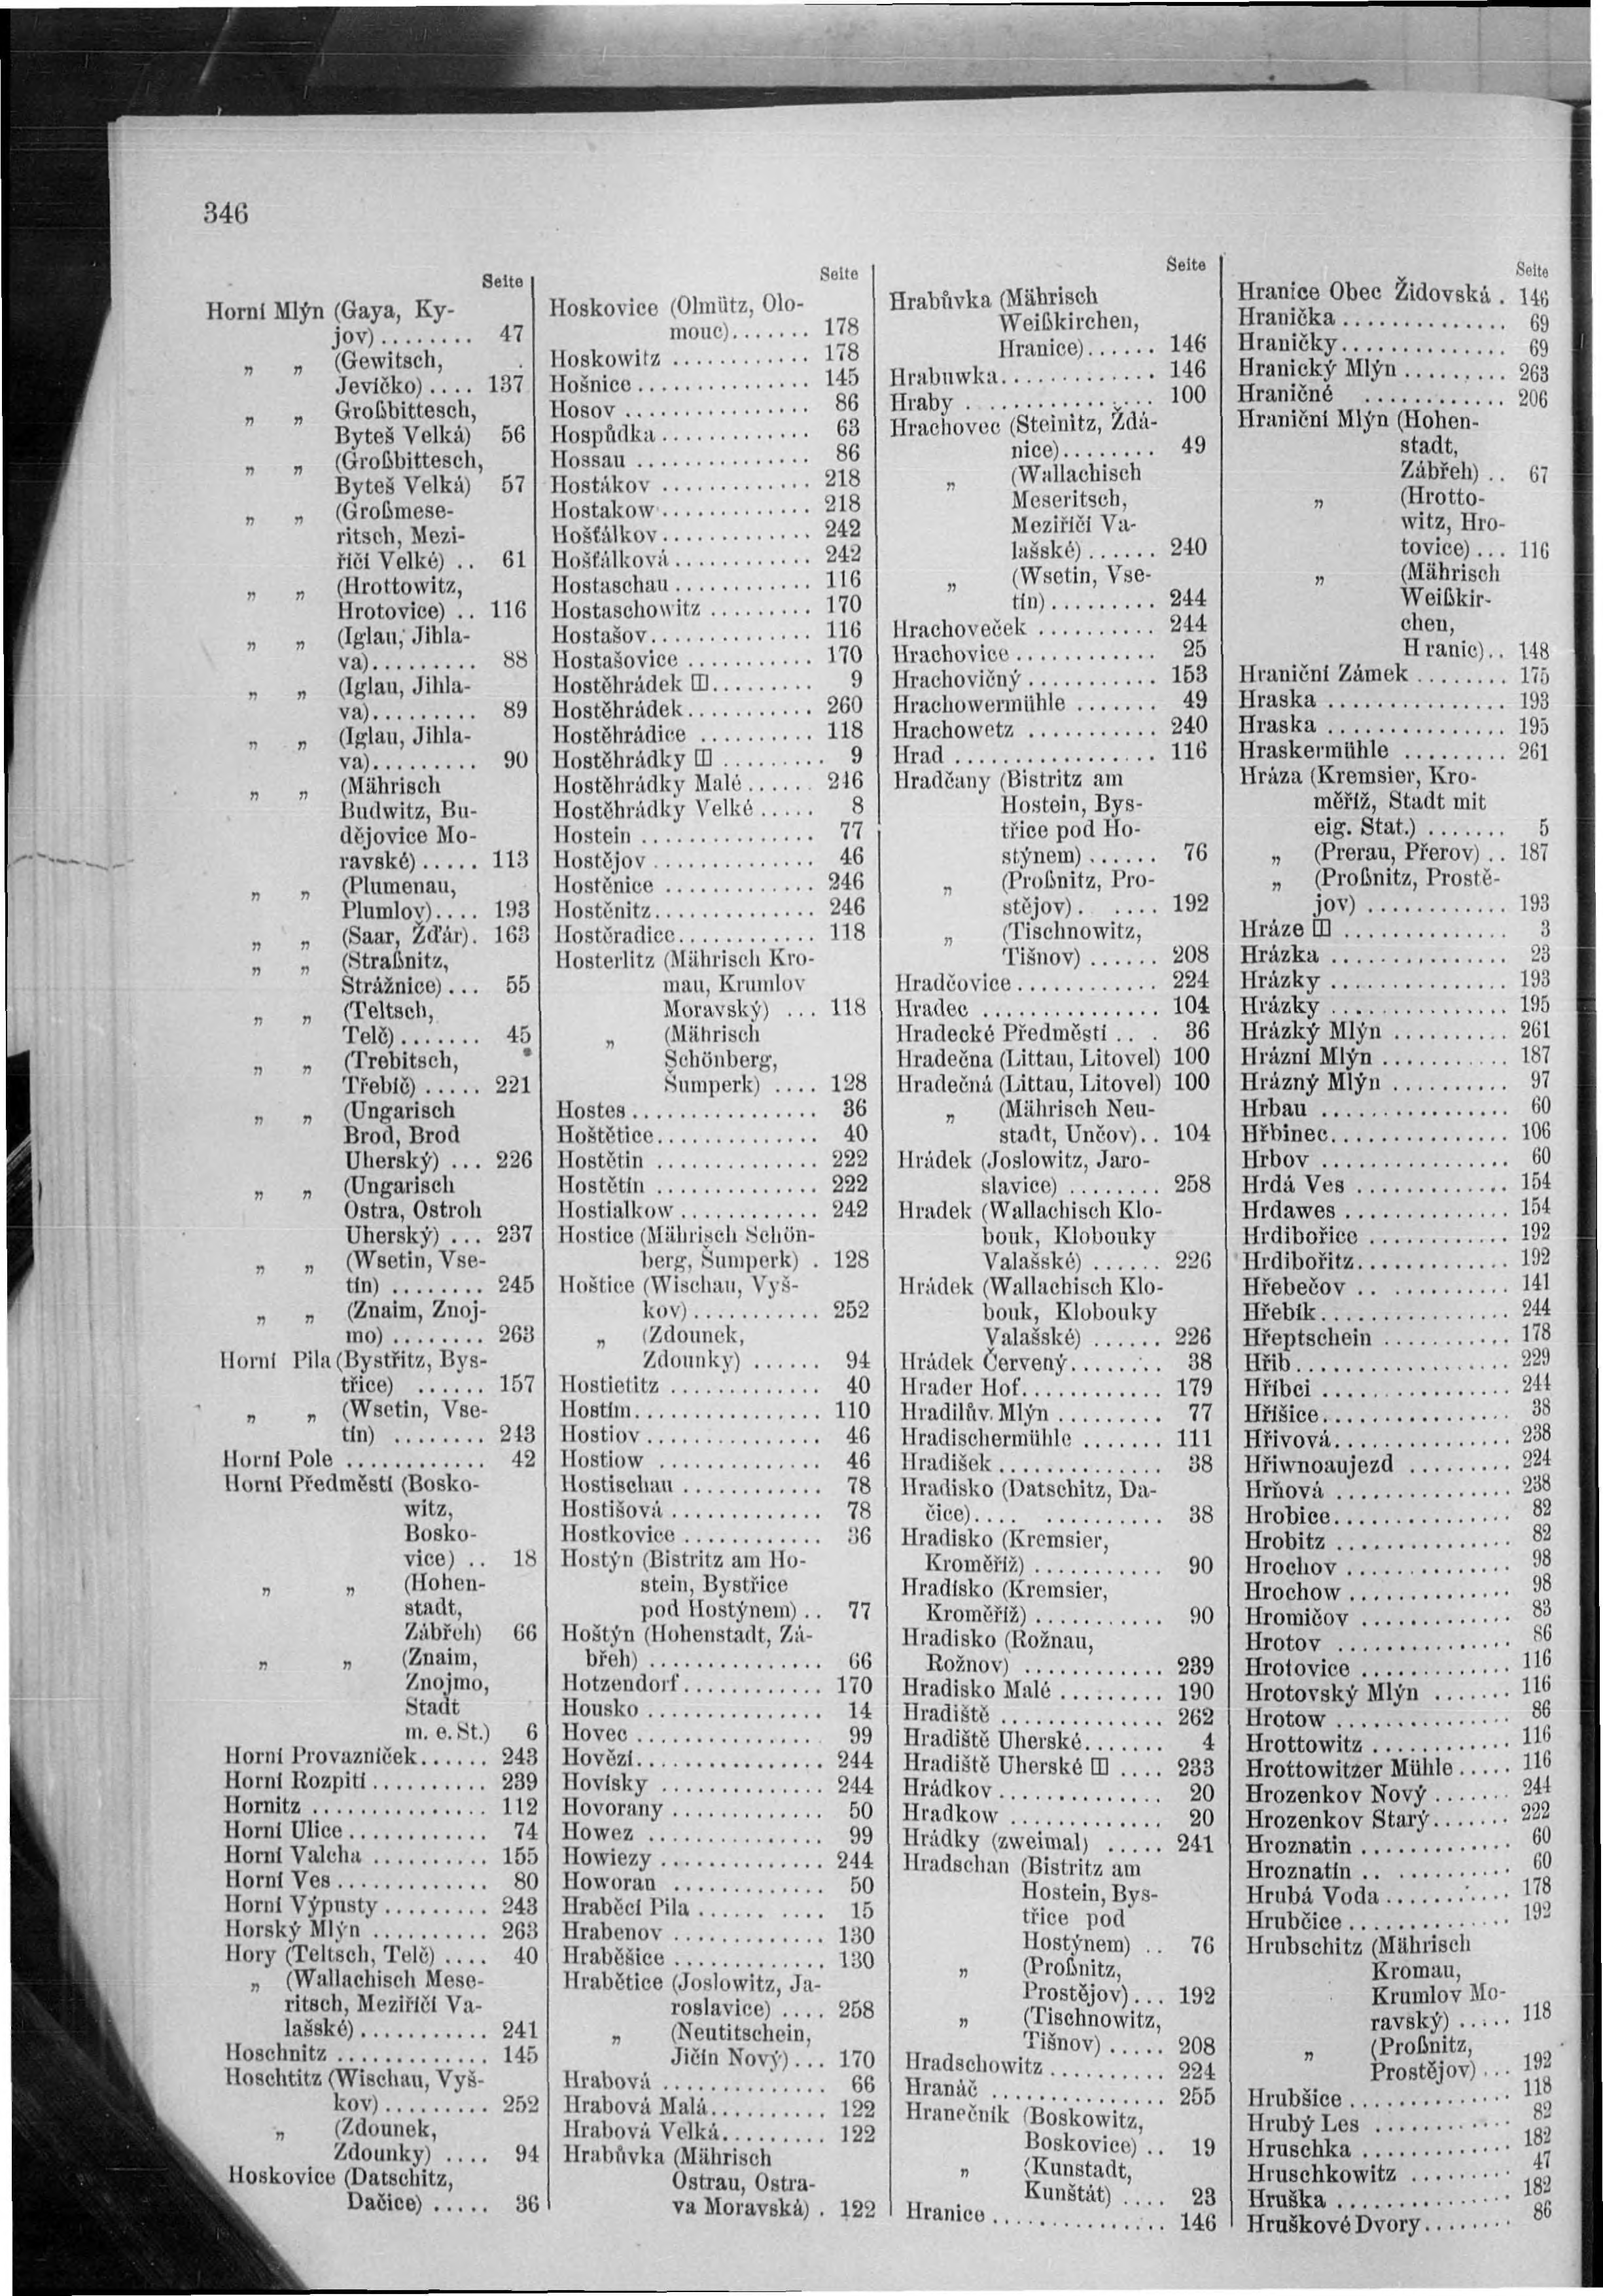 346
Seite
Horní Mlýn (Gaya, Ky-
jov) ......... 47
„ „ (Gewitsch,
Jevíčko) .... 137
„ „ Großbittesch,
Byteš Velká) 56
„ „ (Großbittesch,
Byteš Velká) 57
„ „ (Großmese-
ritsch, Mezi-
říčí Velké) .. 61
„ „ (Hrottowitz,
Hrotovice) .. 116
„ „ (Iglau, Jihla-
va) ......... 88
„ „ (Iglau, Jihla-
va) ......... 89
„ „ (Iglau, Jihla-
va) ......... 90
„ „ (Mährisch
Budwitz, Bu-
dějovice Mo-
ravské) ..... 113
„ „ (Plumenau,
Plumlov) .... 193
„ „ (Saar, Žďár) . 163
„ „ (Straßnitz,
Strážnice) ... 55
„ „ (Teltsch,
Telč) ....... 45
„ „ (Trebitsch,
Třebíč) ..... 221
„ „ (Ungarisch
Brod, Brod
Uherský) ... 226
„ „ (Ungarisch
Ostra, Ostroh
Uherský) ... 237
„ „ (Wsetin, Vse-
tín) ........ 245
„ „ (Znaim, Znoj-
mo) ........ 263
Horní Pila (Bystřitz, Bys-
třice) ...... 157
„ „ (Wsetin, Vse-
tín) ........ 243
Horní Pole ............ 42
Horní Předměstí (Bosko-
witz,
Bosko-
vice) .. 18
„ „ (Hohen-
stadt,
Zábřeh) 66
„ „ (Znaim,
Znojmo,
Stadt
m. e. St.) 6
Horní Provazníček ...... 243
Horní Rozpití .......... 239
Hornitz ............... 112
Horní Ulice ............ 74
Horní Valcha .......... 155
Horní Ves ............. 80
Horní Výpusty ......... 243
Horský Mlýn .......... 263
Hory (Teltsch, Telč) .... 40
„ (Wallachisch Mese-
ritsch, Meziříčí Va-
lašské) ........... 241
Hoschnitz ............. 145
Hoschtitz (Wischau, Vyš-
kov) ......... 252
„ (Zdounek,
Zdounky) .... 94
Hoskovice (Datschitz,
Dačice) ..... 36
Seite
Hoskovice (Olmütz, Olo-
mouc) ....... 178
Hoskowitz ............ 178
Hošnice ............... 145
Hosov ................ 86
Hospůdka ............. 63
Hossau ............... 86
Hostákov ............. 218
Hostakow ............. 218
Hošťálkov ............. 242
Hošťálková ............ 242
Hostaschau ............ 116
Hostaschowitz ......... 170
Hostašov .............. 116
Hostašovice ........... 170
Hostěhrádek ⊞ ......... 9
Hostěhrádek ........... 260
Hostěhrádice .......... 118
Hostěhrádky ⊞ ......... 9
Hostěhrádky Malé ...... 246
Hostěhrádky Velké ..... 8
Hostein ............... 77
Hostějov .............. 46
Hostěnice ............. 246
Hostěnitz .............. 246
Hostěradice ............ 118
Hosterlitz (Mährisch Kro-
mau, Krumlov
Moravský) ... 118
„ (Mährisch
Schönberg,
Šumperk) .... 128
Hostes ................ 36
Hoštětice .............. 40
Hostětin .............. 222
Hostětín .............. 222
Hostialkow ............ 242
Hostice (Mährisch Schön-
berg, Šumperk) . 128
Hoštice (Wischau, Vyš-
kov) ........... 252
„ (Zdounek,
Zdounky) ...... 94
Hostietitz ............. 40
Hostím ................ 110
Hostiov ............... 46
Hostiow .............. 46
Hostischau ............ 78
Hostišová ............. 78
Hostkovice ............ 36
Hostýn (Bistritz am Ho-
stein, Bystřice
pod Hostýnem) .. 77
Hoštýn (Hohenstadt, Zá-
břeh) ............... 66
Hotzendorf ............ 170
Housko ............... 14
Hovec ................ 99
Hovězí ................ 244
Hovísky .............. 244
Hovorany ............. 50
Howez ............... 99
Howiezy .............. 244
Howoran ............. 50
Hraběcí Pila ........... 15
Hrabenov ............. 130
Hraběšice ............. 130
Hrabětice (Joslowitz, Ja-
roslavice) .... 258
„ (Neutitschein,
Jičín Nový) ... 170
Hrabová .............. 66
Hrabová Malá .......... 122
Hrabová Velká ......... 122
Hrabůvka (Mährisch
Ostrau, Ostra-
va Moravská) . 122
Seite
Hrabůvka (Mährisch
Weißkirchen,
Hranice) ...... 146
Hrabuwka ............. 146
Hraby ................ 100
Hrachovec (Steinitz, Ždá-
nice) ........ 49
„ (Wallachisch
Meseritsch,
Meziříčí Va-
lašské) ...... 240
„ (Wsetin, Vse-
tín) ......... 244
Hrachoveček .......... 244
Hrachovice ............ 25
Hrachovičný ........... 153
Hrachowermühle ....... 49
Hrachowetz ........... 240
Hrad ................. 116
Hradčany (Bistritz am
Hostein, Bys-
třice pod Ho-
stýnem) ...... 76
„ (Proßnitz, Pro-
stějov) . .... 192
„ (Tischnowitz,
Tišnov) ...... 208
Hradčovice ............ 224
Hradec ............... 104
Hradecké Předměstí .. . 36
Hradečna (Littau, Litovel) 100
Hradečná (Littau, Litovel) 100
„ (Mährisch Neu-
stadt, Unčov) .. 104
Hrádek (Joslowitz, Jaro-
slavice) ........ 258
Hradek (Wallachisch Klo-
bouk, Klobouky
Valašské) ...... 226
Hrádek (Wallachisch Klo-
bouk, Klobouky
Valašské) ...... 226
Hrádek Červený ........ 38
Hrader Hof ............ 179
Hradilův Mlýn ......... 77
Hradischermühle ....... 111
Hradišek .............. 38
Hradisko (Datschitz, Da-
čice) .... .......... 38
Hradisko (Kremsier,
Kroměříž) ........... 90
Hradísko (Kremsier,
Kroměříž) ........... 90
Hradisko (Rožnau,
Rožnov) ............ 239
Hradisko Malé ......... 190
Hradiště .............. 262
Hradiště Uherské ....... 4
Hradiště Uherské ⊞ .... 233
Hrádkov .............. 20
Hradkow ............. 20
Hrádky (zweimal) ..... 241
Hradschan (Bistritz am
Hostein, Bys-
třice pod
Hostýnem) .. 76
„ (Proßnitz,
Prostějov) ... 192
„ (Tischnowitz,
Tišnov) ..... 208
Hradschowitz .......... 224
Hranáč ............... 255
Hranečník (Boskowitz,
Boskovice) .. 19
„ (Kunstadt,
Kunštát) .... 23
Hranice ............... 146
Seite
Hranice Obec Židovská . 146
Hranička .............. 69
Hraničky .............. 69
Hranický Mlýn ......... 263
Hraničné ............ 206
Hraniční Mlýn (Hohen-
stadt,
Zábřeh) .. 67
„ (Hrotto-
witz, Hro-
tovice) ... 116
„ (Mährisch
Weißkir-
chen,
Hranic) .. 148
Hraniční Zámek ........ 175
Hraska ............... 193
Hraska ............... 195
Hraskermühle ......... 261
Hráza (Kremsier, Kro-
měříž, Stadt mit
eig. Stat.) ....... 5
„ (Prerau, Přerov) .. 187
„ (Proßnitz, Prostě-
jov) ............ 193
Hráze ⊞ .............. 3
Hrázka ............... 23
Hrázky ............... 193
Hrázky ............... 195
Hrázký Mlýn .......... 261
Hrázní Mlýn ........... 187
Hrázný Mlýn .......... 97
Hrbau ................ 60
Hřbinec ............... 106
Hrbov ................ 60
Hrdá Ves ............. 154
Hrdawes .............. 154
Hrdibořice ............ 192
Hrdibořitz ............. 192
Hřebečov .. ........... 141
Hřebík ................ 244
Hřeptschein ........... 178
Hřib .................. 229
Hříbci ................ 244
Hříšice ................ 38
Hřivová ............... 238
Hřiwnoaujezd ......... 224
Hrňová ............... 238
Hrobice ............... 82
Hrobitz ............... 82
Hrochov .............. 98
Hrochow .............. 98
Hromičov ............. 83
Hrotov ............... 86
Hrotovice ............. 116
Hrotovský Mlýn ....... 116
Hrotow ............... 86
Hrottowitz ............ 116
Hrottowitzer Mühle ..... 116
Hrozenkov Nový ....... 244
Hrozenkov Starý ....... 222
Hroznatin ............. 60
Hroznatín .. .......... 60
Hrubá Voda ........... 178
Hrubčice .............. 192
Hrubschitz (Mährisch
Kromau,
Krumlov Mo-
ravský) ..... 118
„ (Proßnitz,
Prostějov) ... 192
Hrubšice .............. 118
Hrubý Les ............ 82
Hruschka ............. 182
Hruschkowitz ......... 47
Hruška ............... 182
Hruškové Dvory ........ 86